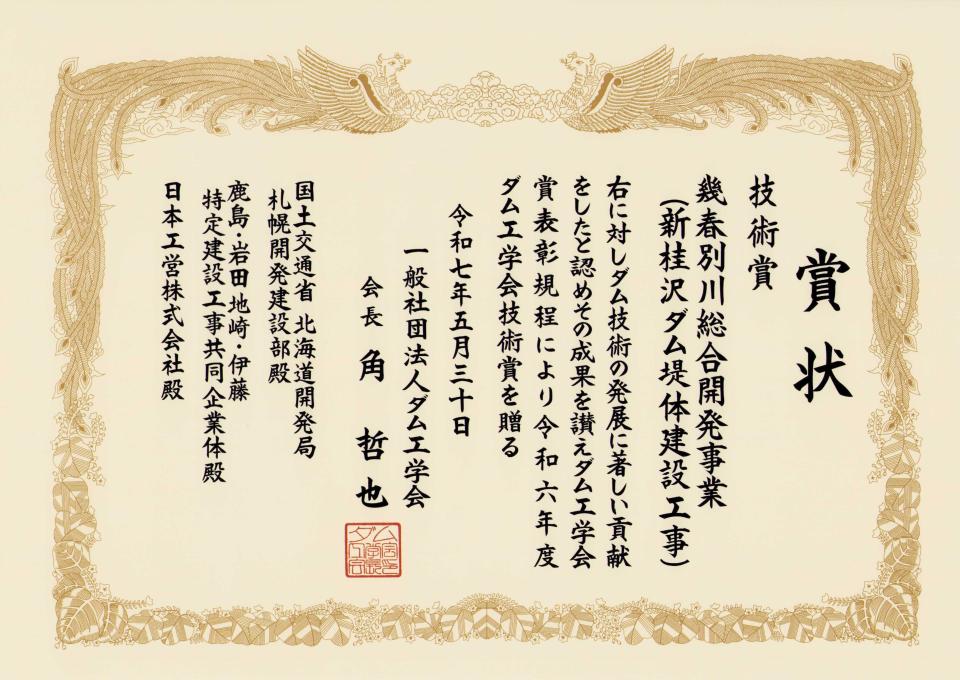 賞状
技術賞
幾春別川総合開発事業
(新桂沢ダム堤体建設工事)
右に対しダム技術の発展に著しい貢献
をしたと認めその成果を讃えダム工学会
賞表彰規程により令和六年度
ダム工学会技術賞を贈る
令和七年五月三十日
一般社団法人ダム工学会
会長 角 哲也
国土交通省 北海道開発局
札幌開発建設部殿
鹿島・岩田地崎・伊藤
特定建設工事共同企業体殿
日本工営株式会社殿